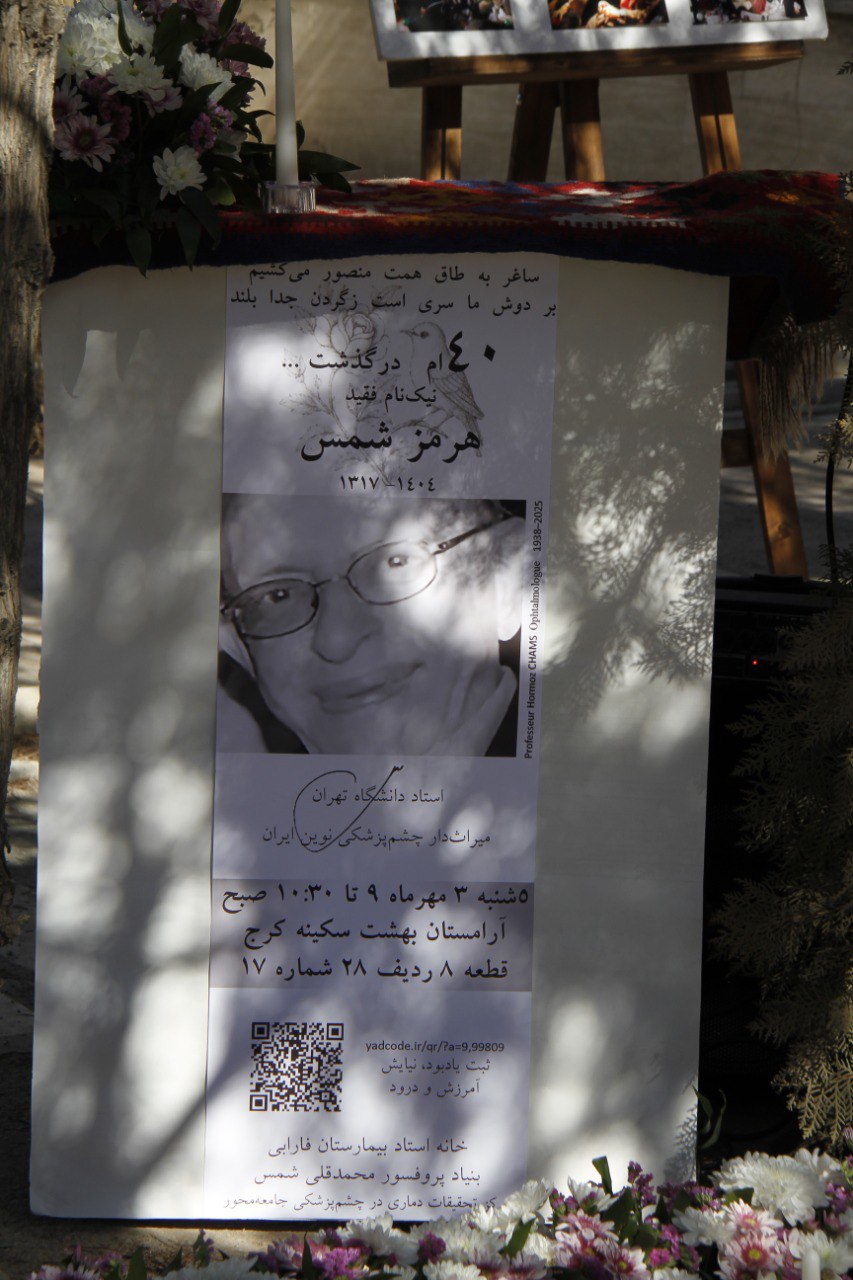 ساغر به طاق همت منصور می‌کشیم
بر دوش ما سری است زگردن جدا بلند
۴۰ام درگذشت ...
نیک‌نام فقید
هرمز شمس
۱۳۱۷-۱۴۰۴
Professeur Hormoz CHAMS Ophtalmologue 1938–2025
استاد دانشگاه تهران
میراث‌دار چشم‌پزشکی نوین ایران
۵شنبه ۳ مهرماه ۹ تا ۱۰:۳۰ صبح
آرامستان بهشت سکینه کرج
قطعه ۸ ردیف ۲۸ شماره ۱۷
yadcode.ir/qr/?a=9,99809
ثبت یادبود، نیایش
آمرزش و درود
خانه استاد بیمارستان فارابی
بنیاد پروفسور محمدقلی شمس
تحقیقات دماری در چشم‌پزشکی جامعه‌محور